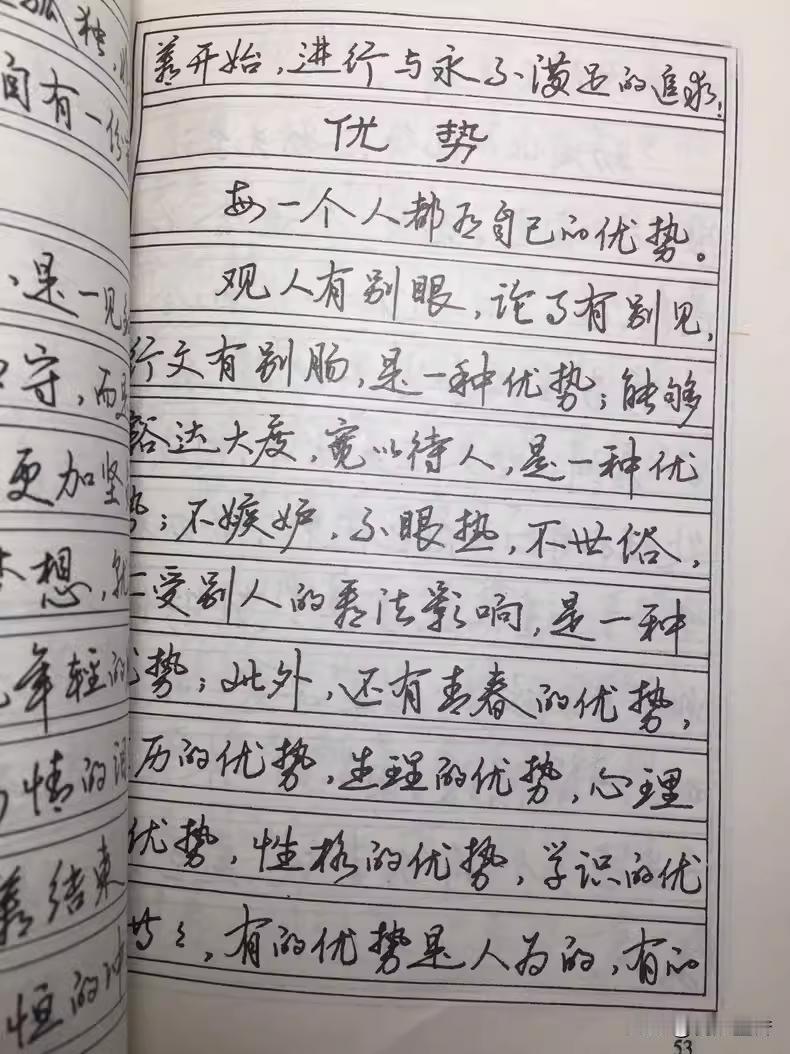 独，
间有一份
是一见
守，而是
更加坚
想，就
年轻的
情的
结束
恒的冲
开始，进行与永不满足的追求！
优 势
每一个人都有自己的优势。
观人有别眼，论事有别见，
行文有别肠，是一种优势；能够
豁达大度，宽以待人，是一种优
势；不嫉妒，不眼热，不世俗，
受别人的看法影响，是一种
优势；此外，还有青春的优势，
历的优势，生理的优势，心理
优势，性格的优势，学识的优
，有的优势是人为的，有的
53